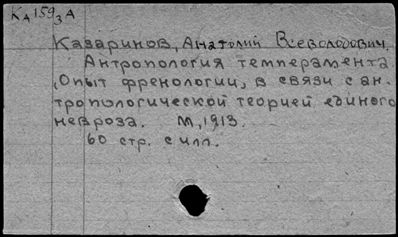 КА 159з А
Казаринов, Анатолий Всеволодович.
Антропология темперамента.
(Опыт френологии, в связи с ан-
тропологической теорией единого
невроза. М, 1913.
60 стр. с илл.